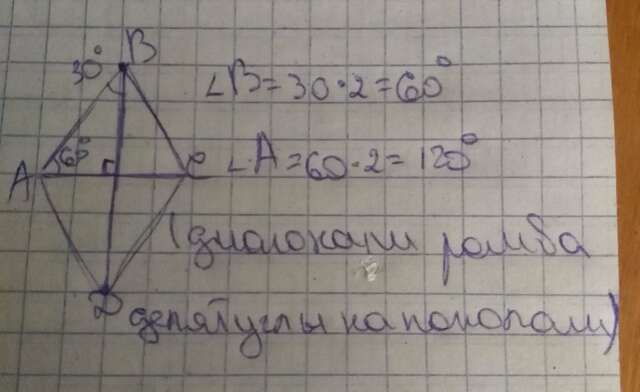 B
30°
∠B=30·2=60°
60°
A
C
∠A=60·2=120°
(диагонали ромба
D
делят углы на пополам)